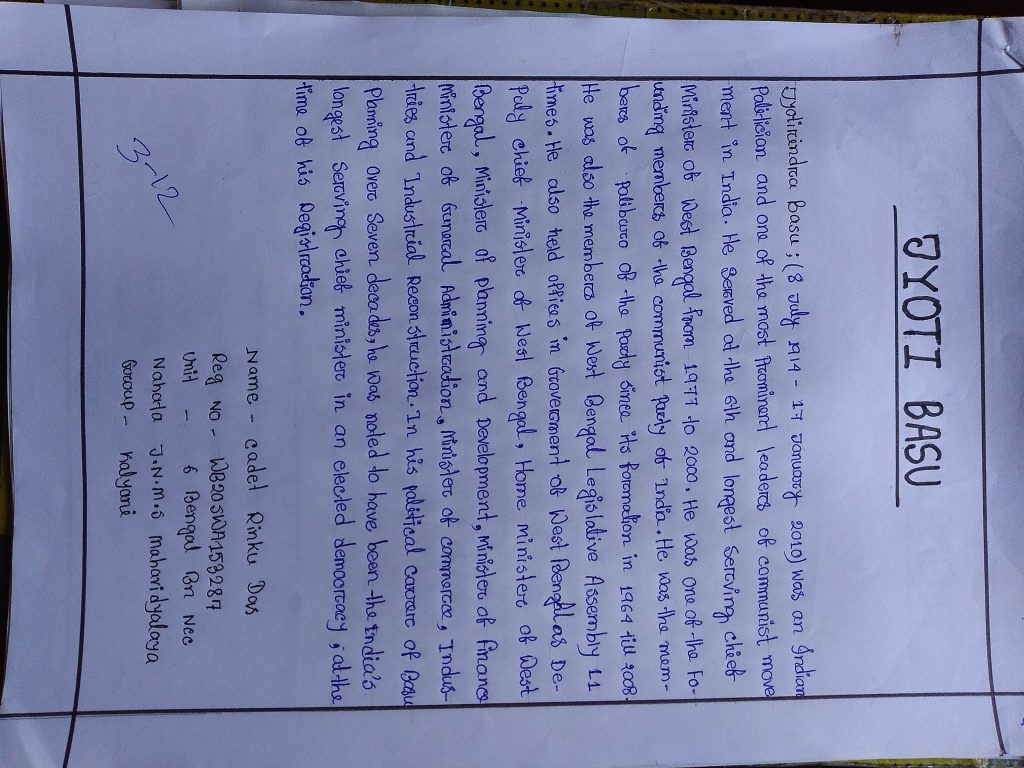 JYOTI BASU
Jyotirindra Basu ; (8 July 1914 - 17 January 2010) was an Indian
Politician and one of the most Prominent leaders of communist move
ment in India. He Served at the 6th and longest Serving chief
Minister of West Bengal from 1977 to 2000. He was one of the Fo-
unding members of the communist party of India. He was the mem-
bers of politburo of the Party since its formation in 1964 till 2008.
He was also the members of West Bengal Legislative Assembly 11
times. He also held offices in Government of West Bengal as De-
puty chief Minister of West Bengal, Home minister of West
Bengal, Minister of planning and Development, Minister of Finance
Minister of General Administration, Minister of commerce, Indus-
tries and Industrial Reconstruction. In his political carrer of Basu
Planing Over Seven decades, he was noted to have been the India's
longest Serving chief minister in an elected democracy, at the
time of his Registration.
3-12
Name - Cadet Rinku Das
Reg No - WB20SWA153287
Unit - 6 Bengal Bn NCC
Nahata J.N.M.S Mahavidyalaya
Group - Kalyani